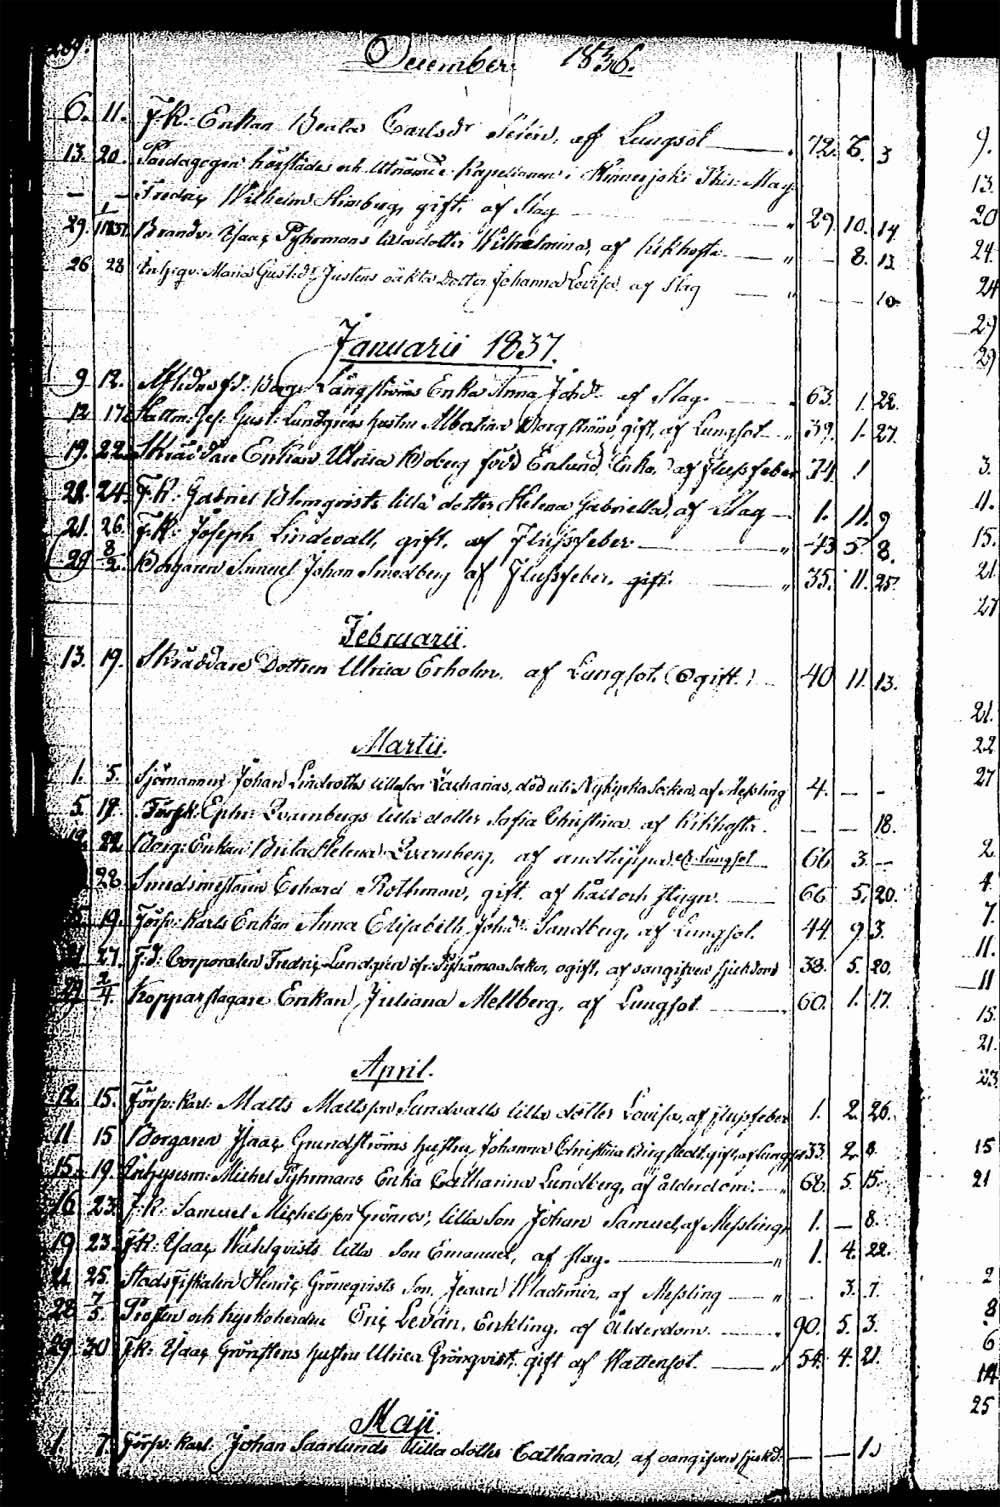 December 1836.
6. 11. F.K: Enkan Beata Carlsdr Serén, af Lungsot 72. 6. 3
13. 20. Pædagogen härstädes och Utnämde Kapellanen i Phil: Mag:
— — Fredric Wilhelm gift, af Slag 29. 10. 14
29. 1/1 1837. Brandv: Isaac Pyhrmans lilla dotter Wilhelmina, af kikhosta " — 8. 13.
26 28 Maria Gustdr Justens oäkta Dotter Johanna Lovisa af Slag " — — 10
Januarii 1837.
9 12. Aflidne f.d: Borg: Långströms Enka Anna Johdr af Slag. 63. 1. 22.
12 17 Gust: Lundgrens hustru Albertina Borgström, gift, af Lungsot 39. 1. 27.
19. 22. Skräddare Enkan Ulrica Boberg född Enlund, Enka, af flussfeber 34 1
22. 24. F.K: Gabriel Blomqvists lilla dotter Helena Gabriella, af Slag 1. 11. 9
21. 26. F.K: Joseph Lindevall, gift, af Flussfeber " 43 5. 8.
29 8/2. Borgaren Samuel Johan Smedberg af Flussfeber. gift. " 35. 11. 25.
Februarii.
13. 19. Skräddare Dottren Ulrica Erholm, af Lungsot, (Ogift.) 40 11. 13.
Martii.
1. 5. Sjömannen Johan Lindroths lilla son Zacharias, död uti Nykyrka Socken, af Messling 4. — —
5. 17. Försk: Ephr: Qvarnbergs lilla dotter Safia Christina af kikhosta. — — 18.
22 Borg: Enkan Brita Helena Qvarnberg, af andtäppa och lungsot 66 3. —
28. Smedmestaren Erhard Rothman, gift, af håll och stygn. 66 5. 20.
19. Försv: Karls Enkan Anna Elisabeth Johdr Sandberg, af Lungsot. 44 9 3.
27. F.d: Corporalen Fredric Lundgren ifr: Pyhämaa Socken, ogift, af oangifven sjukdom 38. 5. 20.
29 2/4. Kopparslagare Enkan, Juliana Mellberg, af Lungsot 60. 1. 17.
April.
12. 15. Försv: karl: Matts Mattsson Sundvalls lilla dotter Lovisa, af flussfeber 1. 2. 26.
11 15 Borgaren Isaac Grundströms hustru Johanna Christina Ringstedt, gift, af lungsot 33. 2. 8.
15. 19. Michel Pyhrmans Enka Catharina Lundberg, af ålderdom. " 68. 5. 15.
16 23. F.K: Samuel Michelsson Grönroos, lilla Son Johan Samuel, af Messling, 1. — 8.
19 23. F.K: Isaac Wahlqvists lilla Son Emanuel, af slag. " 1. 4. 22.
21 25. Stads Fiskalen Henric Grönqvists Son, Johan Wladimir, af Messling " — 3. 7.
28 7/5. Prosten och kyrkoherden Eric Levan, Enkling, af Ålderdom. " 90. 5. 3.
29. 30 F.K: Isaac Grönstens hustru Ulrica Grönqvist, gift af Wattensot. " 54. 4. 21.
Maji.
1. 7. Försv: karl: Johan Saarlunds lilla dotter Catharina, af oangifven sjukd: — — 1.
9.
13.
20
24.
24
29
29
3.
11.
15.
21
27
21.
22
27
2
4
7.
11.
11
15.
21.
23.
15
21
2
8
6
14
25